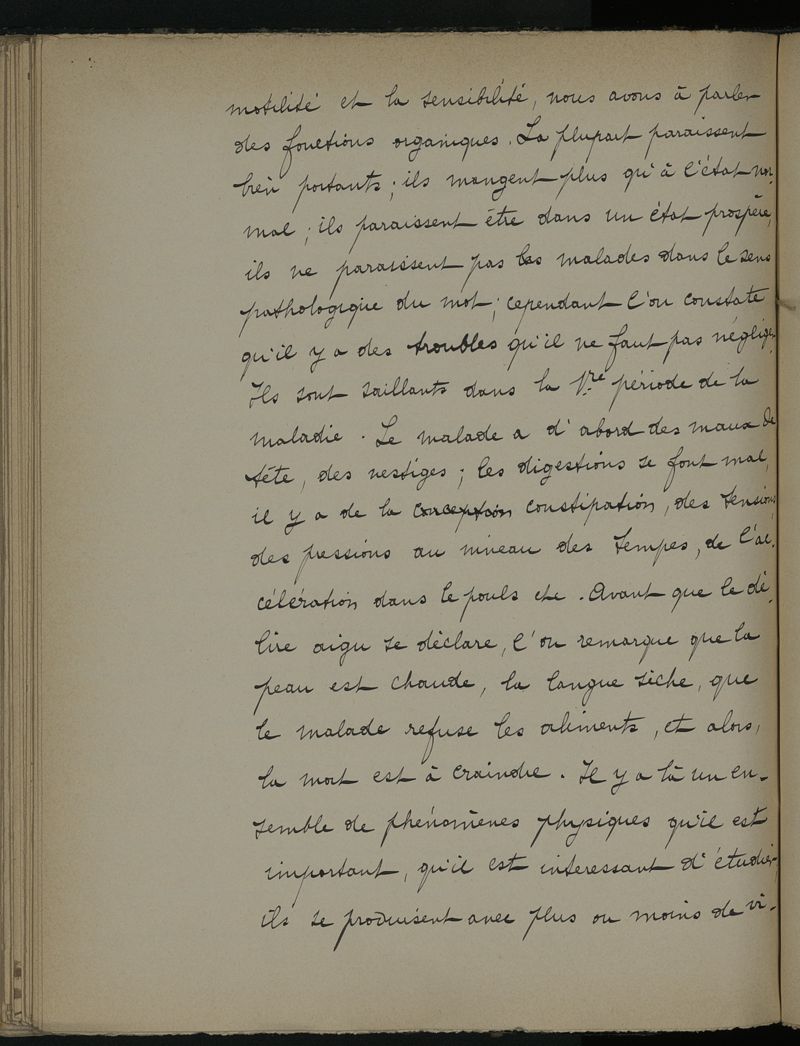 motilité et la sensibilité, nous avons à parler
des fonctions organiques. La plupart paraissent
bien portants ; ils mangent plus qu'à l'état nor-
mal ; ils paraissent être dans un état prospère,
ils ne paraissent pas les malades dans le sens
pathologique du mot ; cependant l'on constate
qu'il y a des troubles qu'il ne faut pas négliger.
Ils sont saillants dans la 1re période de la
maladie. Le malade a d'abord des maux de
tête, des vestiges ; les digestions se font mal,
il y a de la conception constipation, des tensions,
des pressions au niveau des tempes, de l'ac-
célération dans le pouls etc. Avant que le dé-
lire aigu se déclare, l'on remarque que la
peau est chaude, la langue sèche, que
le malade refuse les aliments, et alors,
la mort est à craindre. Il y a là un en-
semble de phénomènes physiques qu'il est
important, qu'il est interessant d'étudier,
ils se produisent avec plus ou moins de vi-